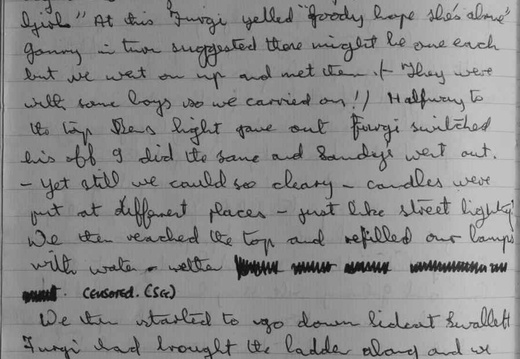 girls" At this Furgi yelled "goody hope she's alone"
Ganny in turn suggested there might be one each
but we wet on up and met them :- They were
with some boys so we carried on!! Halfway to
the top Bens light gave out Furgi switched
his off I did the same and Sandys went out.
- Yet still we could see cleary - candles were
put at different places - just like street lights
We then reached the top and refilled our lamps
with water - wetter
CENSORED. (SEE)
We then started to go down Sidcot Swallett
Furgi had brought the ladder along and we